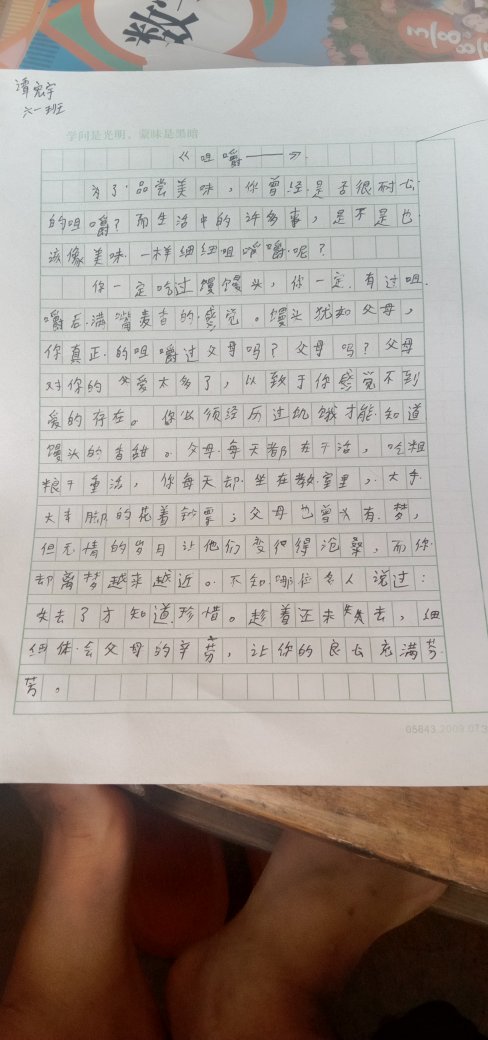 数
谭宏宇
六一班
学问是光明，蒙昧是黑暗
《咀嚼——》
为了品尝美味，你曾经是否很耐长
的咀嚼？而生活中的许多事，是不是也
该像美味一样细细咀嚼嚼呢？
你一定吃过馒馒头，你一定有过咀
嚼后满嘴麦香的感觉。馒头犹如父母，
你真正的咀嚼过父母吗？父母吗？父母
对你的爱太多了，以致于你感觉不到
爱的存在。你必须经历过饥饿才能知道
馒头的香甜。父母每天都在干活，吃粗
粮干重活，你每天却坐在教室里，大手
大手脚的花着钞票；父母也曾有梦，
但无情的岁月让他们变得沧桑，而你
却离梦越来越近。不知哪位名人说过：
失去了才知道珍惜。趁着还未失失去，细
细体会父母的辛劳，让你的良长充满芬
芳。
05643.2009.07.3